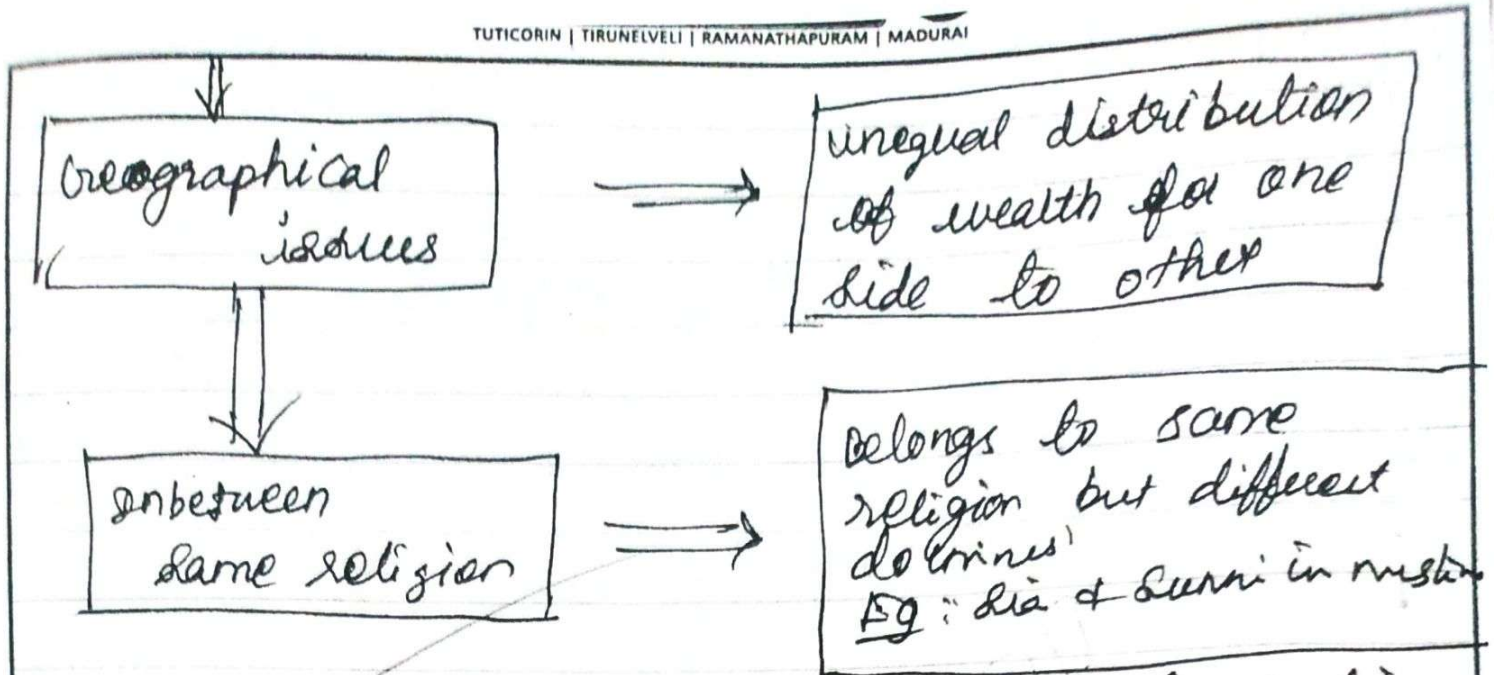 TUTICORIN | TIRUNELVELI | RAMANATHAPURAM | MADURAI
Geographical
issues
unequal distribution
of wealth for one
side to other
Inbetween
same religion
Belongs to same
religion but different
Eg: Sia & Sunni in muslim